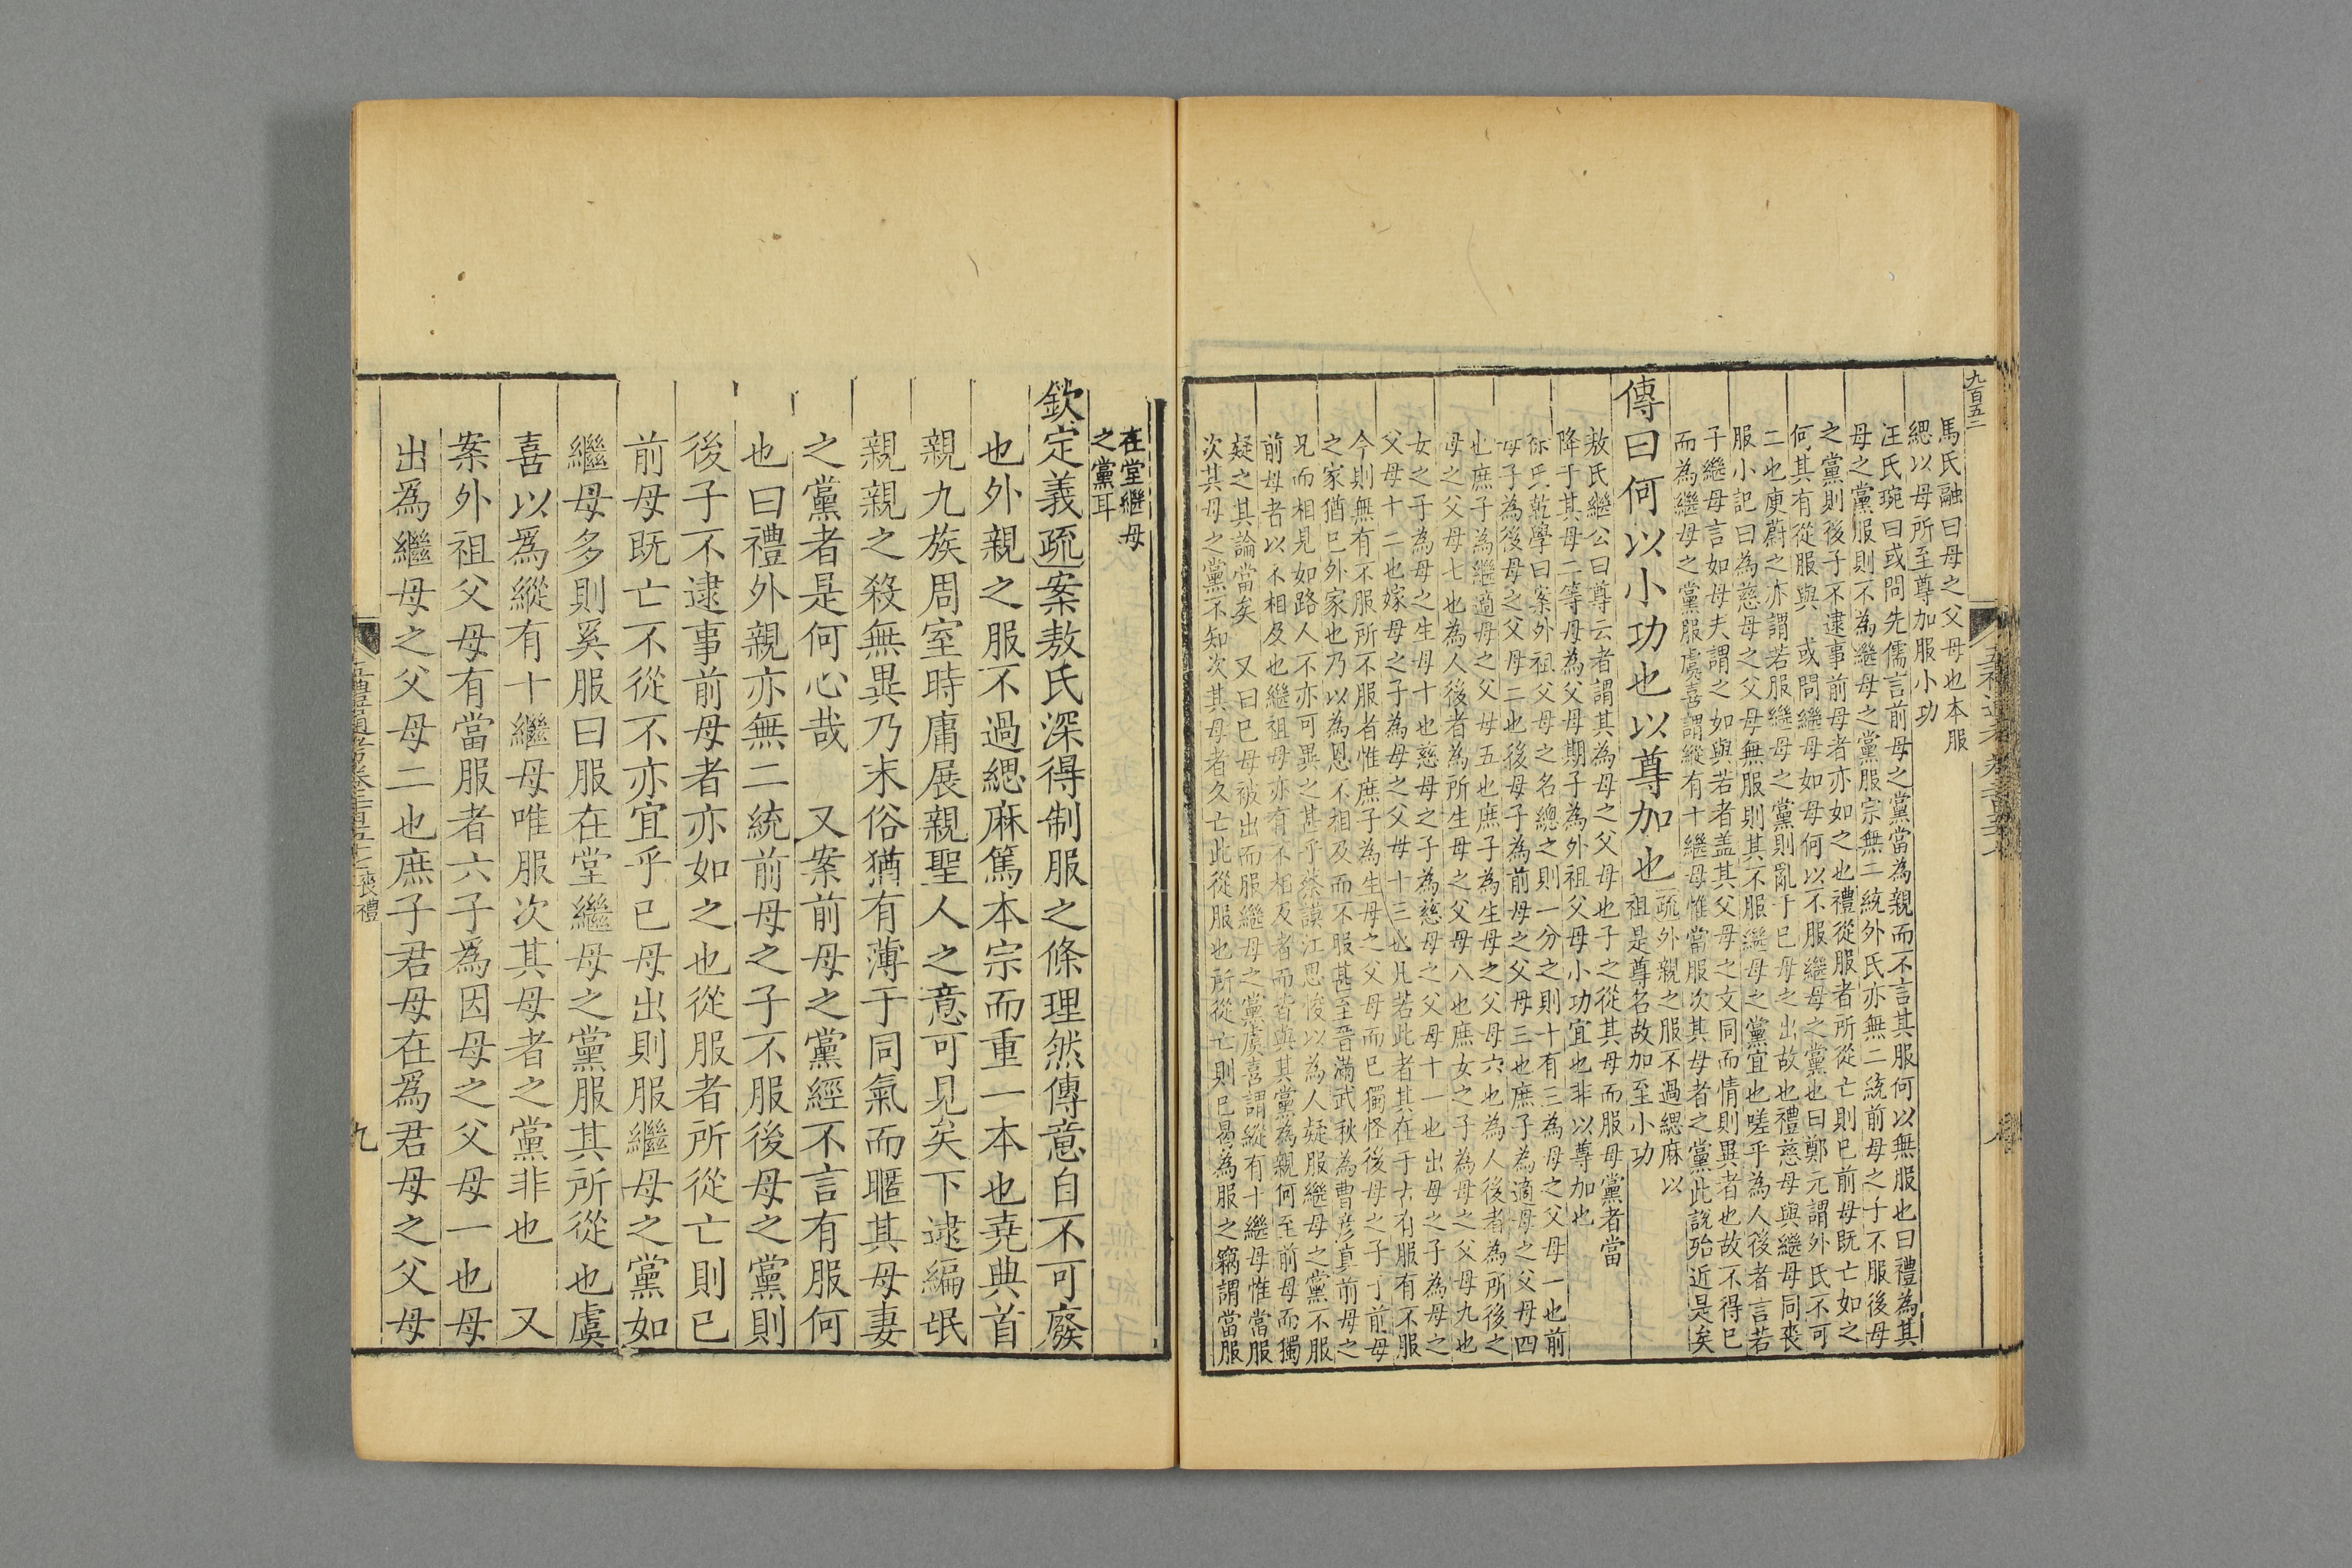 九百五二
馬氏融曰母之父母也本服
緦以母所至尊加服小功
汪氏琬曰或問先儒言前母之黨當為親而不言其服何以無服也曰禮為其
母之黨服則不為繼母之黨服宗無二統外氏亦無二統前母之子不服後母
之黨則後子不逮事前母者亦如之也禮從服者所從亡則已前母既亡如之
何其有從服與 或問繼母如母何以不服繼母之黨也曰鄭元謂外氏不可
二也庾蔚之亦謂若服繼母之黨則亂于已母之出故也禮慈母與繼母同喪
服小記曰為慈母之父母無服則其不服繼母之黨宜也嗟乎為人後者言若
子繼母言如母夫謂之如與若者盖其父母之文同而情則異者也故不得已
而為繼母之黨服虞喜謂縱有十繼母惟當服次其母者之黨此說殆近是矣
傳曰何以小功也以尊加也
疏外親之服不過緦麻以
祖是尊名故加至小功
敖氏繼公曰尊云者謂其為母之父母也子之從其母而服母黨者當
降于其母二等母為父母期子為外祖父母小功宜也非以尊加也
徐氏乾學曰案外祖父母之名總之則一分之則十有三為母之父母一也前
母子為後母之父母二也後母子為前母之父母三也庶子為適母之父母四
也庶子為繼適母之父母五也庶子為生母之父母六也為人後者為所後之
母之父母七也為人後者為所生母之父母八也庶女之子為母之父母九也
女之子為母之生母十也慈母之子為慈母之父母十一也出母之子為母之
父母十二也嫁母之子為母之父母十三也凡若此者其在于古有服有不服
今則無有不服所不服者惟庶子為生母之父母而已獨怪後母之子于前母
之家猶已外家也乃以為恩不相及而不服甚至晋滿武秋為曹彥真前母之
兄而相見如路人不亦可異之甚乎蔡謨江思悛以為人疑服繼母之黨不服
前母者以不相及也繼祖母亦有不相及者而皆與其黨為親何至前母而獨
疑之其論當矣 又曰已母被出而服繼母之黨虞喜謂縱有十繼母惟當服
次其母之黨不知次其母者久亡此從服也所從亡則已曷為服之竊謂當服
在堂繼母
之黨耳
欽定義疏案敖氏深得制服之條理然傳意自不可廢
也外親之服不過緦麻篤本宗而重一本也堯典首
親九族周室時庸展親聖人之意可見矣下逮編氓
親親之殺無異乃末俗猶有薄于同氣而暱其母妻
之黨者是何心哉 又案前母之黨經不言有服何
也曰禮外親亦無二統前母之子不服後母之黨則
後子不逮事前母者亦如之也從服者所從亡則已
前母既亡不從不亦宜乎已母出則服繼母之黨如
繼母多則奚服曰服在堂繼母之黨服其所從也虞
喜以爲縱有十繼母唯服次其母者之黨非也 又
案外祖父母有當服者六子爲因母之父母一也母
出爲繼母之父母二也庶子君母在爲君母之父母
五禮通考卷二百五十七 喪禮
九